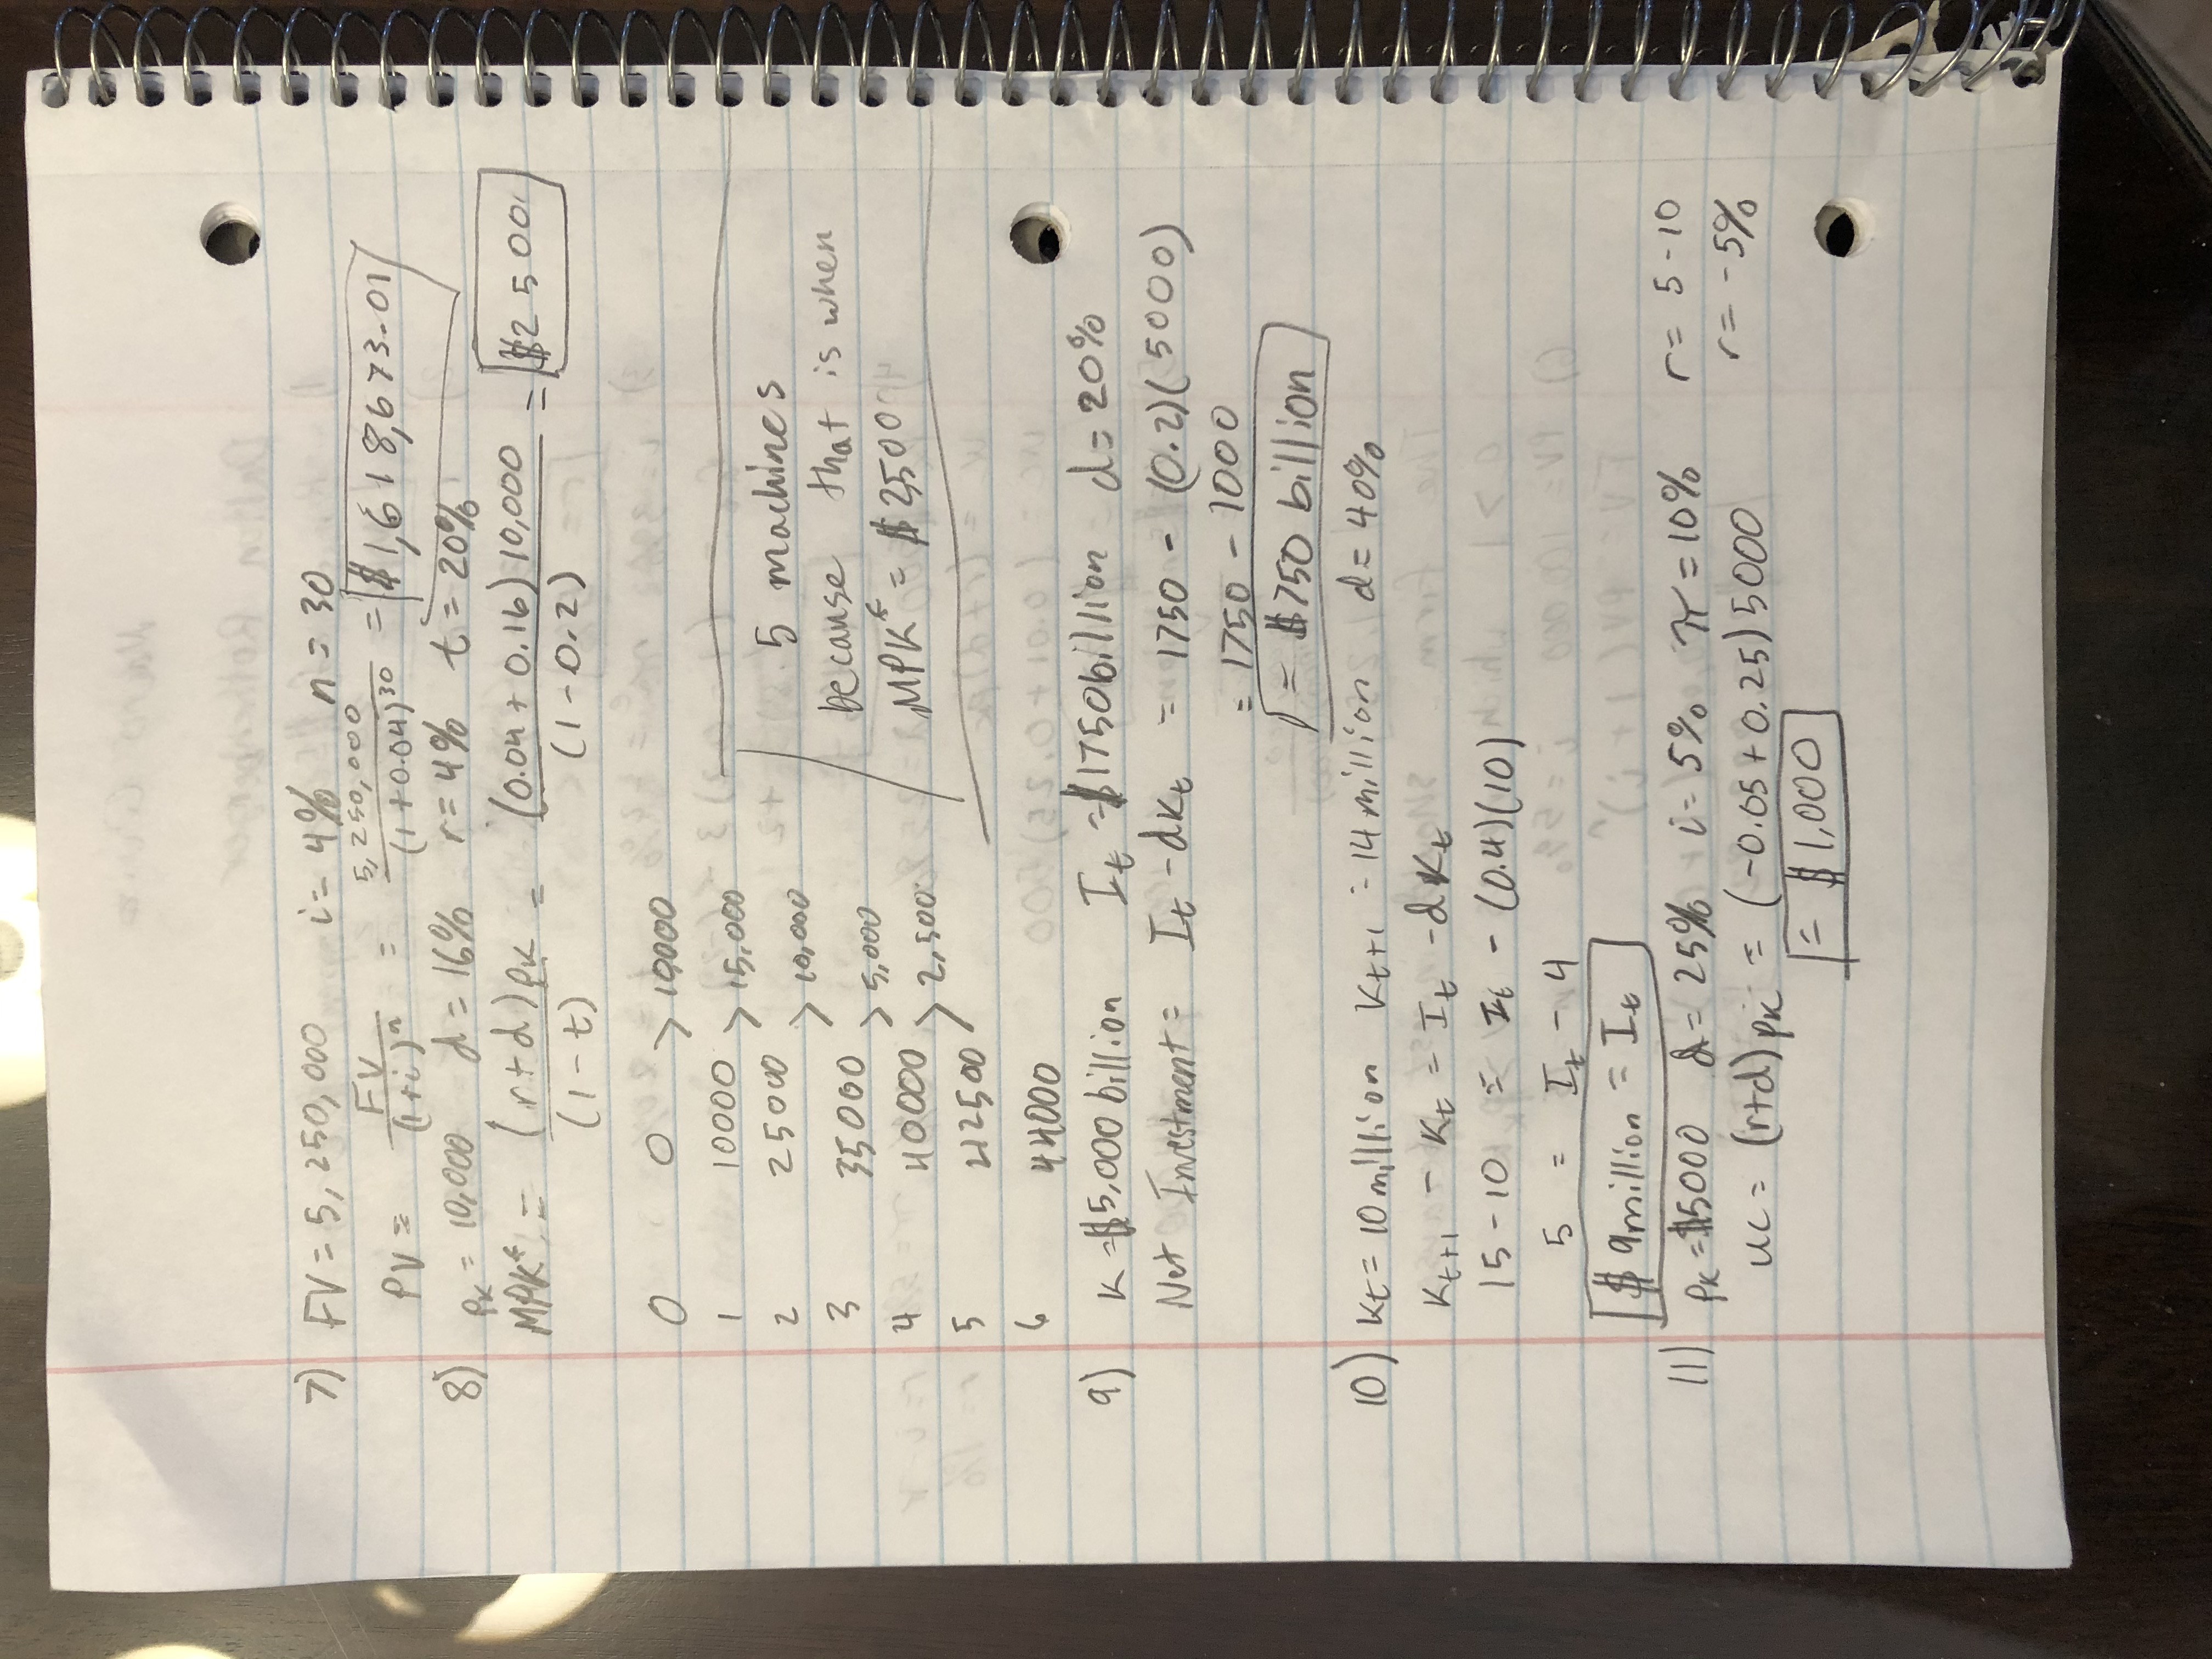 7) FV = 5,250,000 i = 4% n = 30
PV = FV/(1+i)^n = 5,250,000/(1+0.04)^30 = $1,618,673.01
8) pK = 10,000 d = 16% r = 4% t = 20%
MPK* = (r+d)pK/(1-t) = (0.04 + 0.16)10,000/(1-0.2) = $2500
0 0 > 10,000
1 10000 > 15,000
2 25000 > 10,000
3 35000 > 5,000
4 40000 > 2,500
5 42500
6 44000
5 machines
because that is when
MPK* = $2,500
9) K = $5,000 billion It = $1750 billion d = 20%
Net Investment = It - dKt = 1750 - (0.2)(5000)
= 1750 - 1000
= $750 billion
10) Kt = 10 million Kt+1 = 14 million d = 40%
Kt+1 - Kt = It - dKt
15 - 10 = It - (0.4)(10)
5 = It - 4
$9million = It
11) pK = $5000 d = 25% i = 5% π = 10% r = 5-10
r = -5%
uc = (r+d)pK = (-0.05 + 0.25)5000
= $1,000